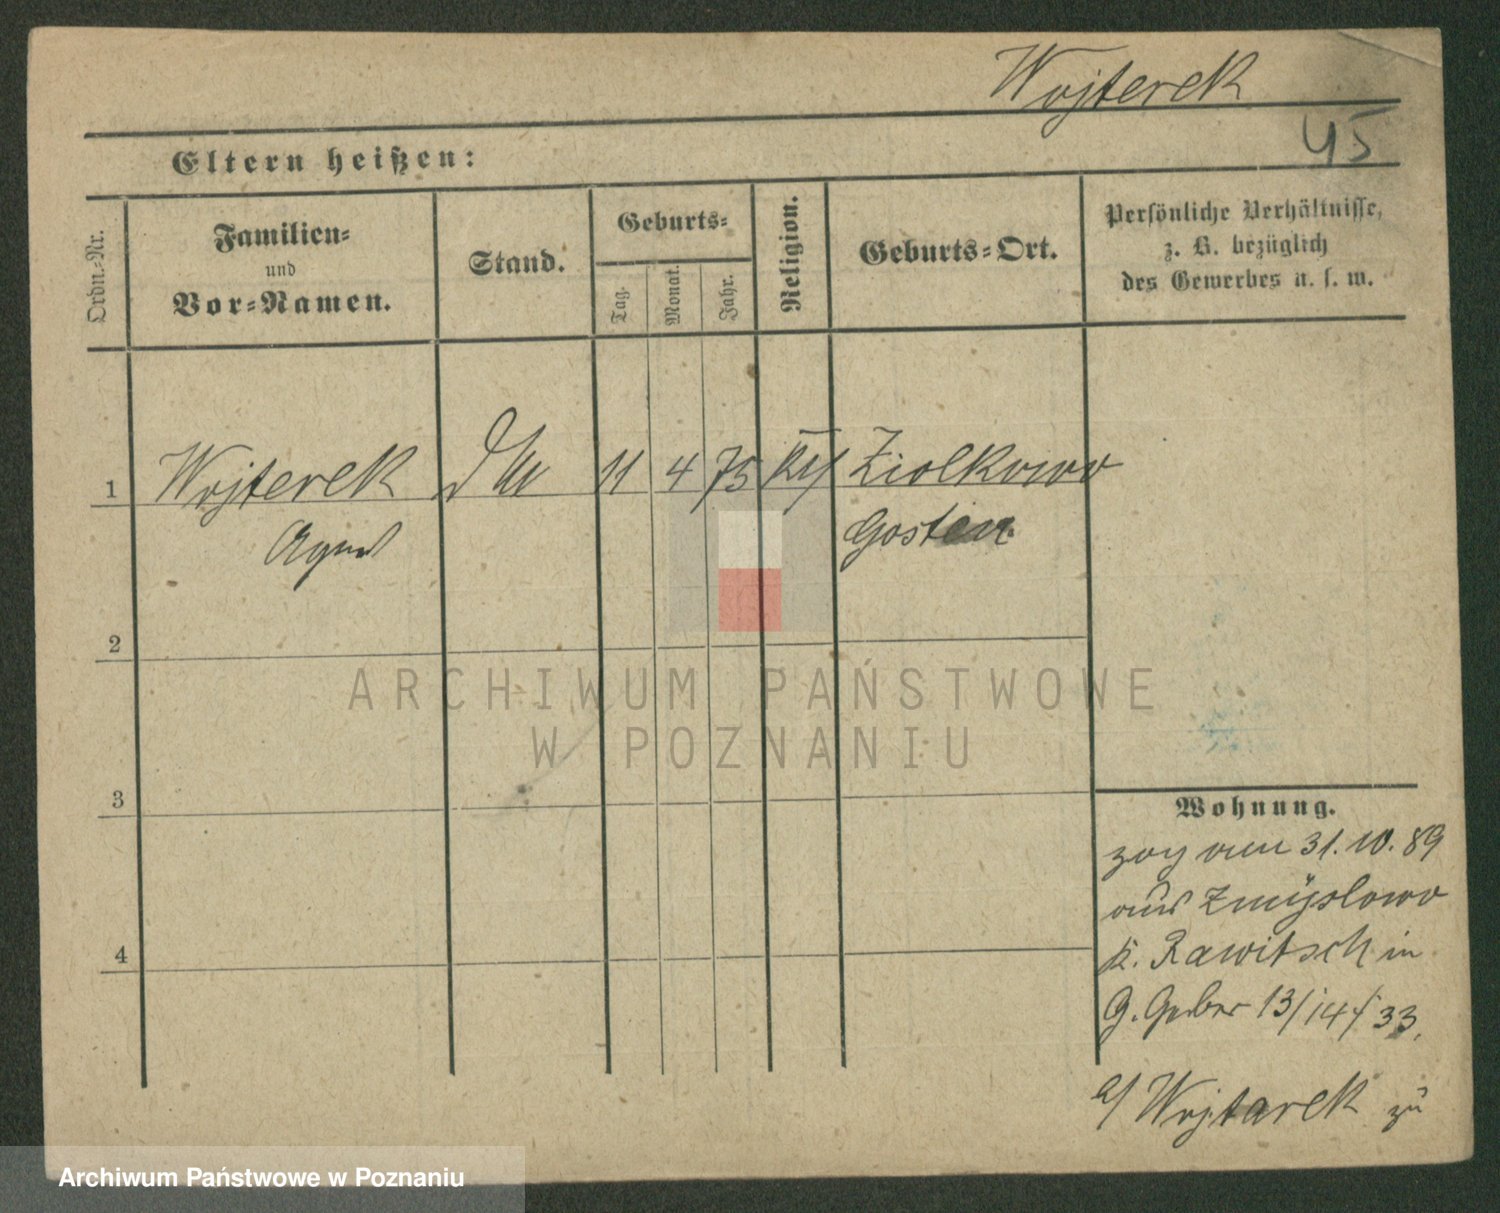 Wojterek
45
Eltern heißen:
Ordn.-Nr.
Familien-
und
Vor-Namen.
Stand.
Geburts-
Tag.
Monat.
Jahr.
Religion.
Geburts-Ort.
Persönliche Verhältnisse,
z. B. bezüglich
des Gewerbes u. s. w.
1 Wojterek 11 4 75 Ziolkowo
Agnes Gostyn
2
3
4
ARCHIWUM PAŃSTWOWE
W POZNANIU
Wohnung.
zog am 31.10.89
aus Zmÿslowo
K. Rawitsch in
G. Gerber 13/14/33.
Wojtarek zu
Archiwum Państwowe w Poznaniu